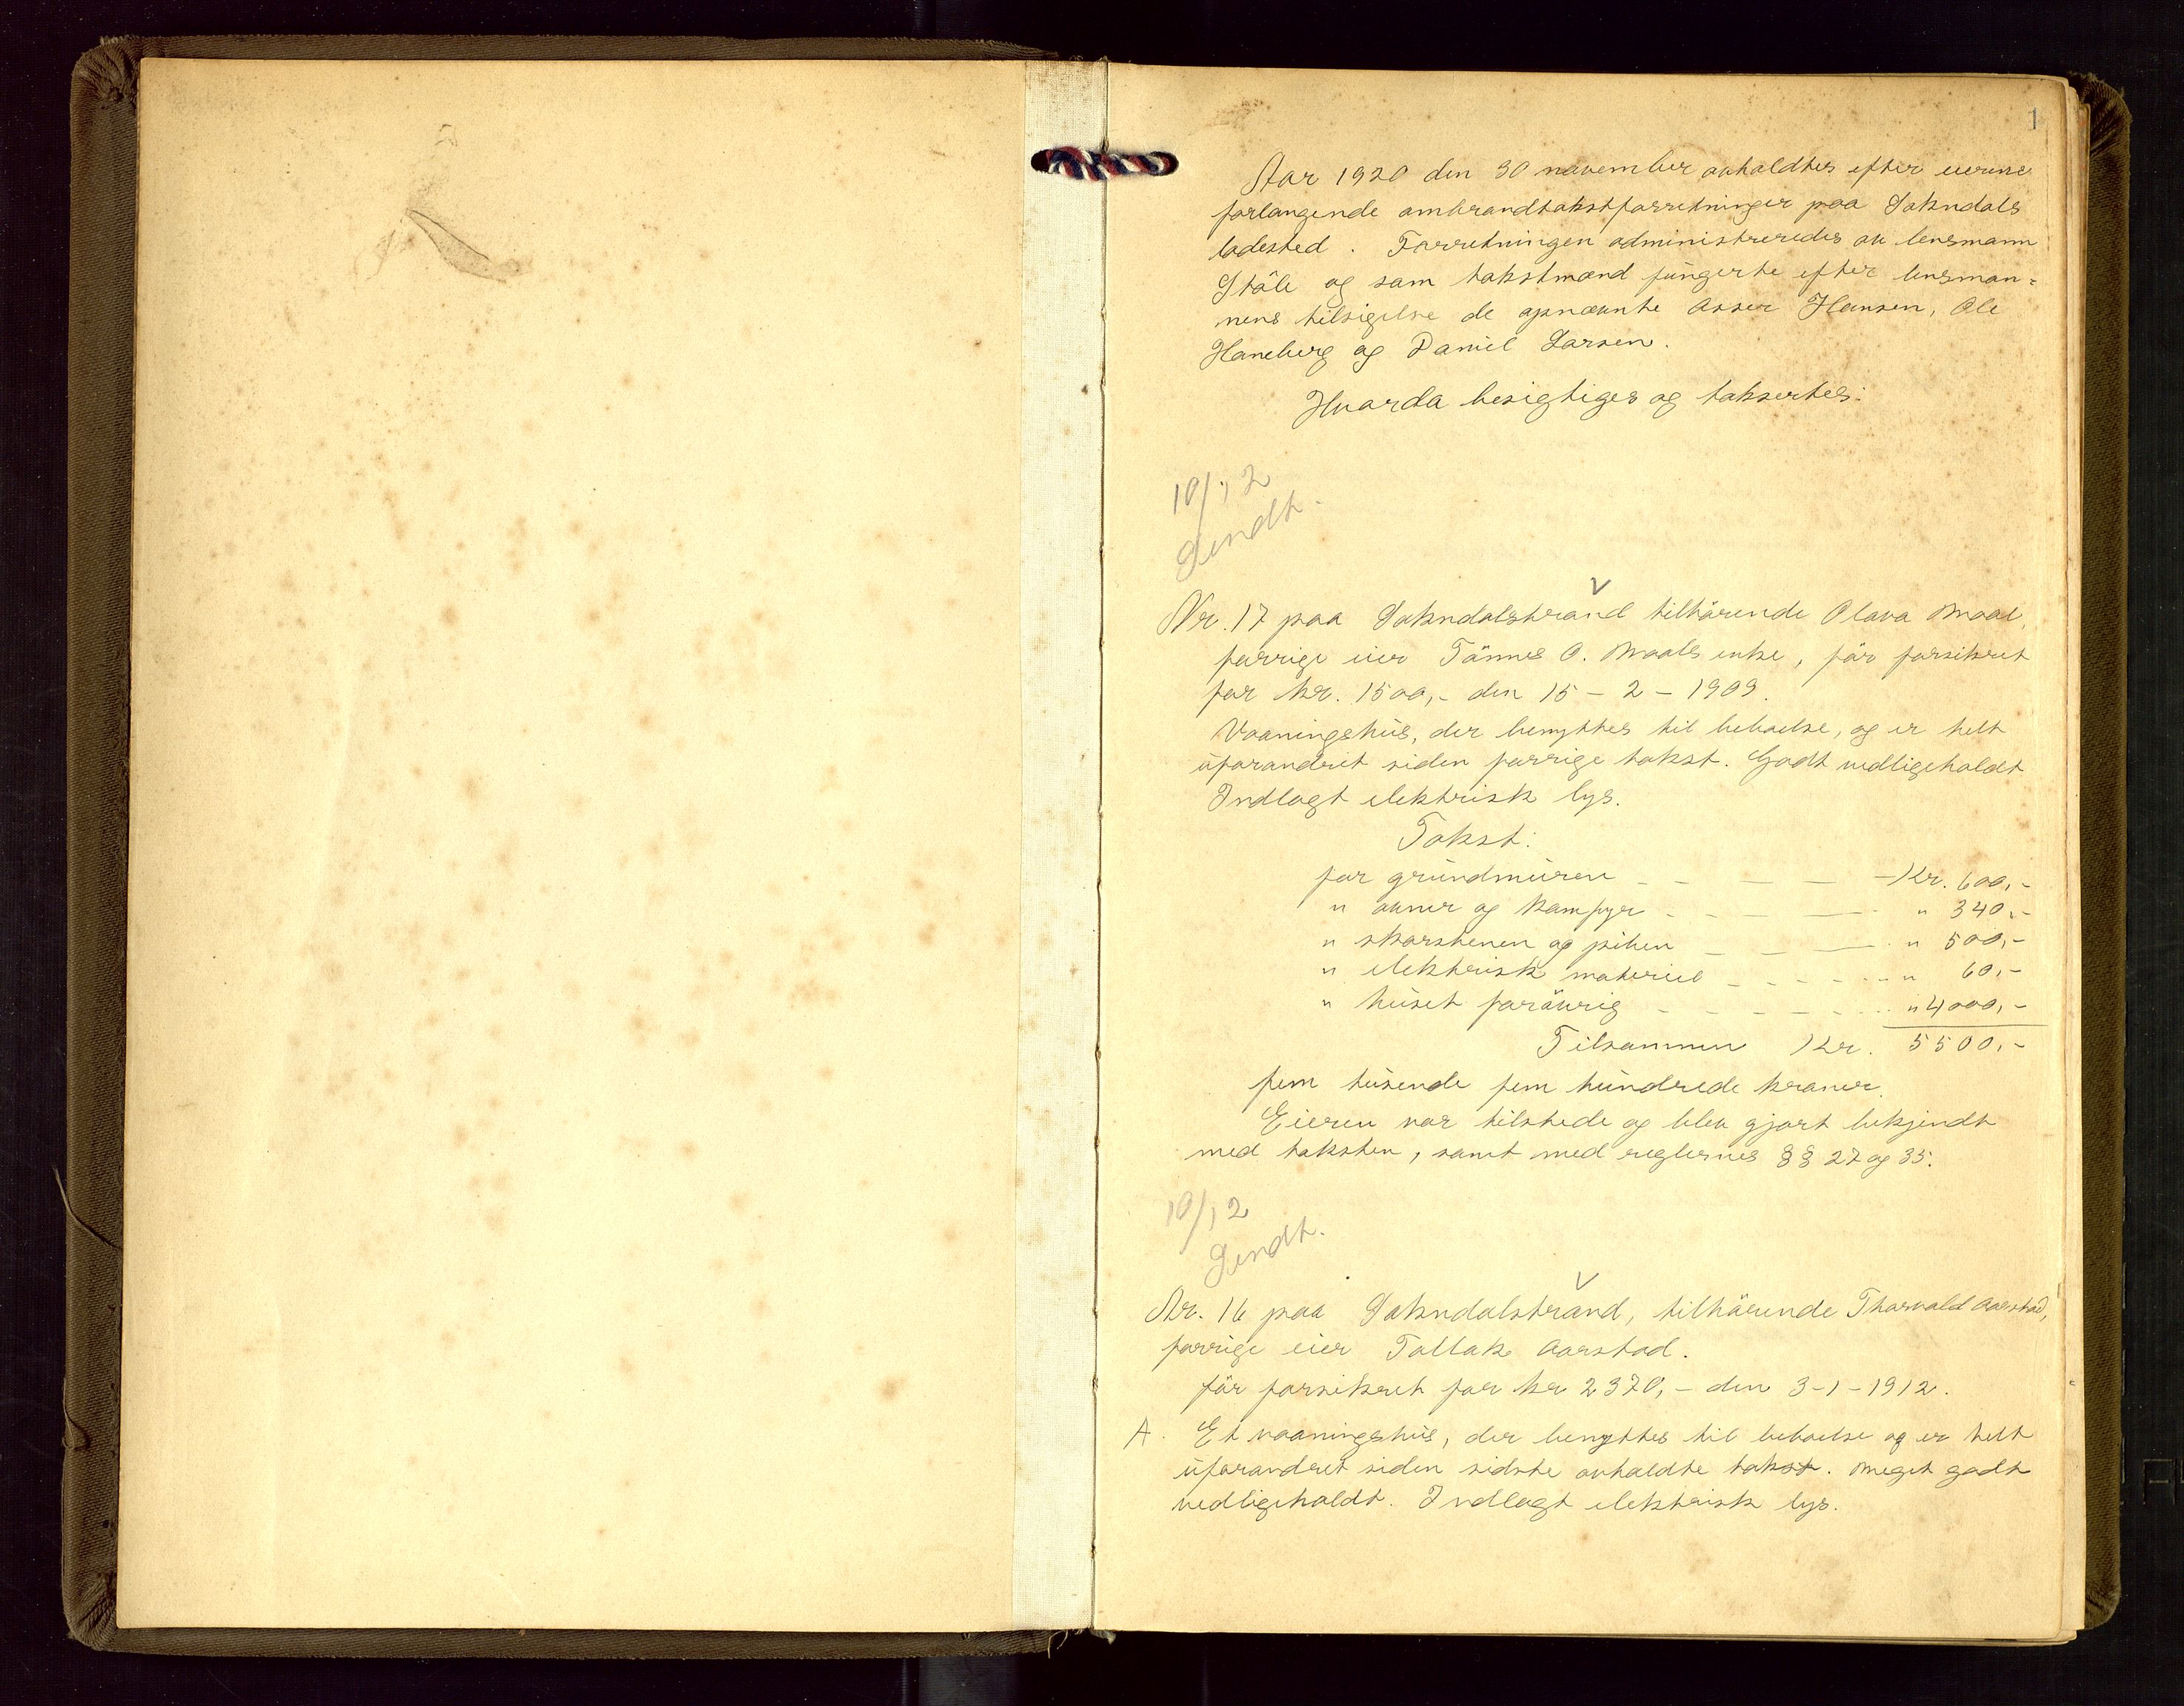 1
Aar 1920 den 30 november avholdtes efter eierne
forlangende ombrandtakstforretninger paa Soknedals
ladested. Forretningen administreredes av lensmann
Ståle og som takstmænd fungerte efter lensman-
nens tilsigelse de opnævnte Asser Hansen, Ole
Haneberg og Daniel Larsen.
Hvorda besigtiges og taksertes:
10/12
Sendt.
Nr. 17 paa Sokndalstrand tilhörende Olava Moal,
forrige eier Tönnes O. Moals enke, för forsikret
for kr. 1500,- den 15-2-1909.
Vaaningshus, der benyttes til beboelse, og er helt
uforandret siden forrige takst. Godt vedligeholdt
Indlagt elektrisk lys.
Takst:
for grundmuren Kr. 600,-
" ovner og komfyr " 340,-
" skorstenen og piben " 500,-
" elektrisk materiel " 60,-
" huset forövrig " 4000,-
Tilsammen Kr. 5500,-
fem tusende fem hundrede kroner.
Eieren var tilstede og blev gjort bekjendt
med taksten, samt med reglernes §§ 27 og 35.
10/12
Sendt.
Nr. 16 paa Sokndalstrand, tilhörende Thorvald Aarstad,
forrige eier Tollak Aarstad.
för forsikret for kr 2370,- den 3-1-1912.
A. Et vaaningshus, der benyttes til beboelse og er helt
uforandret siden sidste avholdte takst. Meget godt
vedligeholdt. Indlagt elektrisk lys.